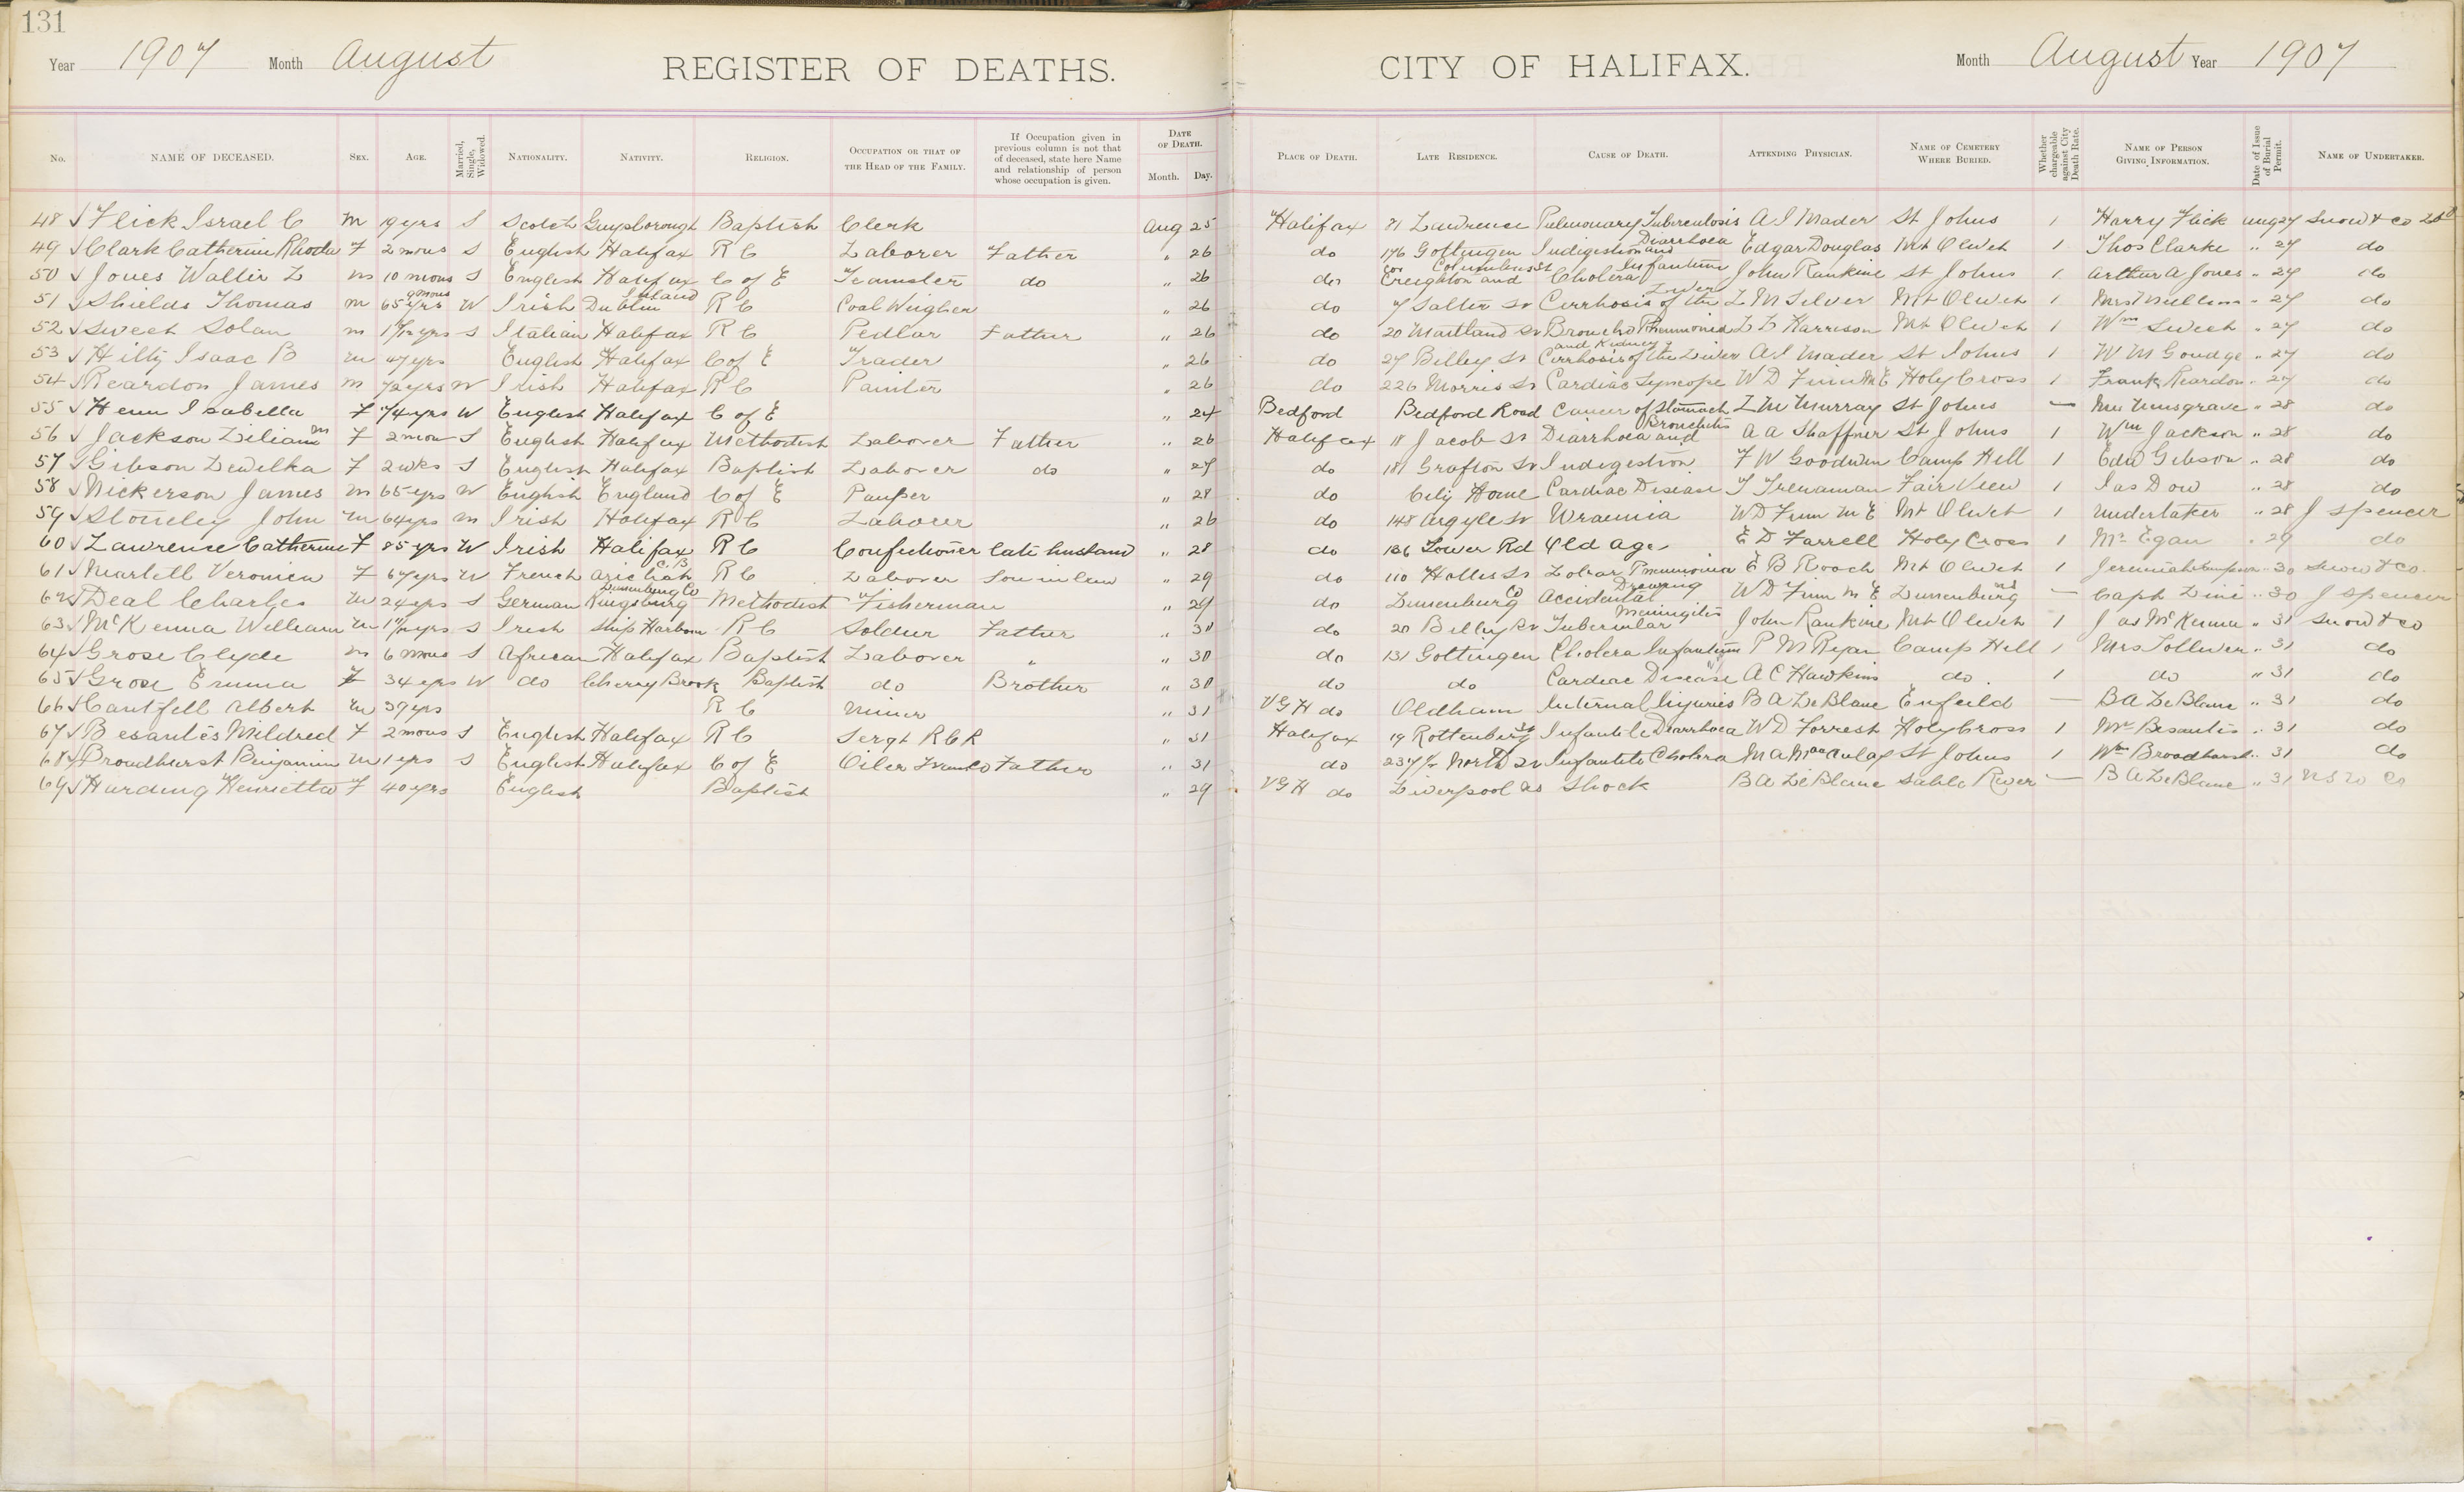 131
Year 1907 Month August REGISTER OF DEATHS. CITY OF HALIFAX. Month August Year 1907
No. NAME OF DECEASED. SEX. AGE. Married, Single, Widowed. NATIONALITY. NATIVITY. RELIGION. OCCUPATION OR THAT OF THE HEAD OF THE FAMILY. If Occupation given in previous column is not that of deceased, state here Name and relationship of person whose occupation is given. DATE OF DEATH. Month. Day. PLACE OF DEATH. LATE RESIDENCE. CAUSE OF DEATH. ATTENDING PHYSICIAN. NAME OF CEMETERY WHERE BURIED. Whether chargeable against City Death Rate. NAME OF PERSON GIVING INFORMATION. Date of Issue of Burial Permit. NAME OF UNDERTAKER.
48 ✓ Flick Israel C M 19 yrs S Scotch Guysborough Baptist Clerk Aug 25 Halifax 21 Lawrence Pulmonary Tuberculosis A I Mader St Johns 1 Harry Flick Aug 27 Snow & Co
49 ✓ Clark Catherine Rhoda F 2 mous S English Halifax R C Laborer Father " 26 do 176 Gottingen Indigestion and Diarrhoea Edgar Douglas Mt Olivet 1 Thos Clarke " 27 do
50 ✓ Jones Walter L m 10 mous S English Halifax C of E Teamster do " 26 do cor Creighton and Columbus St Cholera Infantum John Rankine St Johns 1 Arthur A Jones " 27 do
51 ✓ Shields Thomas m 65 yrs 9 mous W Irish Dublin Ireland R C Coal Weigher " 26 do 7 Salter St Cirrhosis of the Liver L M Silver Mt Olivet 1 " 27 do
52 ✓ Sweet Solan m 1 yrs S Italian Halifax R C Pedlar Father " 26 do 20 Maitland St Broncho Pneumonia L L Harrison Mt Olivet 1 Wm Sweet " 27 do
53 ✓ Hilty Isaac B m 47 yrs English Halifax C of E Trader " 26 do 27 Bilby St Cirrhosis of the Liver and Kidneys A I Mader St Johns 1 W M Goudge " 27 do
54 ✓ Reardon James m 72 yrs W Irish Halifax R C Painter " 26 do 226 Morris St Cardiac Syncope W D Finn M E Holy Cross 1 Frank Reardon " 27 do
55 ✓ Henn Isabella F 74 yrs W English Halifax C of E " 24 Bedford Bedford Road Cancer of Stomach L M Murray St Johns — Mrs Musgrave " 28 do
56 ✓ Jackson Liliam m F 2 mous S English Halifax Methodist Laborer Father " 26 Halifax 18 Jacob St Diarrhoea and Bronchitis A A Shaffner St Johns 1 Wm Jackson " 28 do
57 ✓ Gibson Dewilka F 2 wks S English Halifax Baptist Laborer do " 27 do 181 Grafton St Indigestion F W Goodwin Camp Hill 1 Edw Gibson " 28 do
58 ✓ Nickerson James m 65 yrs W English England C of E Pauper " 28 do City Home Cardiac Disease T Trenaman Fair View 1 Jas Dow " 28 do
59 ✓ Stoneley John m 64 yrs m Irish Halifax R C Laborer " 26 do 148 Argyle St Uraemia W D Finn M E Mt Olivet 1 Undertaker " 28 J Spencer
60 ✓ Lawrence Catherine F 85 yrs W Irish Halifax R C Confectioner late husband " 28 do 136 Tower Rd Old Age E D Farrell Holy Cross 1 Mr Egan " 29 do
61 ✓ Martell Veronica F 67 yrs W French Arichat C.B R C Laborer Son in law " 29 do 110 Hollis St Lobar Pneumonia E B Roach Mt Olivet 1 Jeremiah " 30 Snow & Co.
62 ✓ Deal Charles m 24 yrs S German Kingsburg Lunenburg Co Methodist Fisherman " 29 do Lunenburg Co Accidental Drowning W D Finn M E Lunenburg NS — Capt Zinc " 30 J Spencer
63 ✓ McKenna William m 1 11/12 yrs S Irish Ship Harbour R C Soldier Father " 31 do 20 Bilby St Tubercular Meningitis John Rankine Mt Olivet 1 Jas McKenna " 31 Snow & Co
64 ✓ Grose Clyde m 6 mous S African Halifax Baptist Laborer " " 30 do 131 Gottingen Cholera Infantum P M Ryan Camp Hill 1 Mrs Tolliver " 31 do
65 ✓ Grose Emma F 34 yrs W do Cherry Brook Baptist do Brother " 30 do do Cardiac Disease A C Hawkins do 1 do " 31 do
66 ✓ Cantfell Albert m 39 yrs R C Miner " 31 V G H do Oldham Internal Injuries B A LeBlanc Enfield — B A LeBlanc " 31 do
67 ✓ Besantes Mildred F 2 mous S English Halifax R C Sergt R C R " 31 Halifax 19 Rottenberg St Infantile Diarrhoea W D Forrest Holy Cross 1 Mr Besantis " 31 do
68 ✓ Broadhurst Benjamin m 1 yrs S English Halifax C of E Oiler Father " 31 do 237½ North St Infantile Cholera M A Macaulay St Johns 1 Wm Broadhurst " 31 do
69 ✓ Harding Henrietta F 40 yrs English Baptist " 29 V G H do Liverpool NS Shock B A LeBlanc Sable River — B A LeBlanc " 31 N S U Co